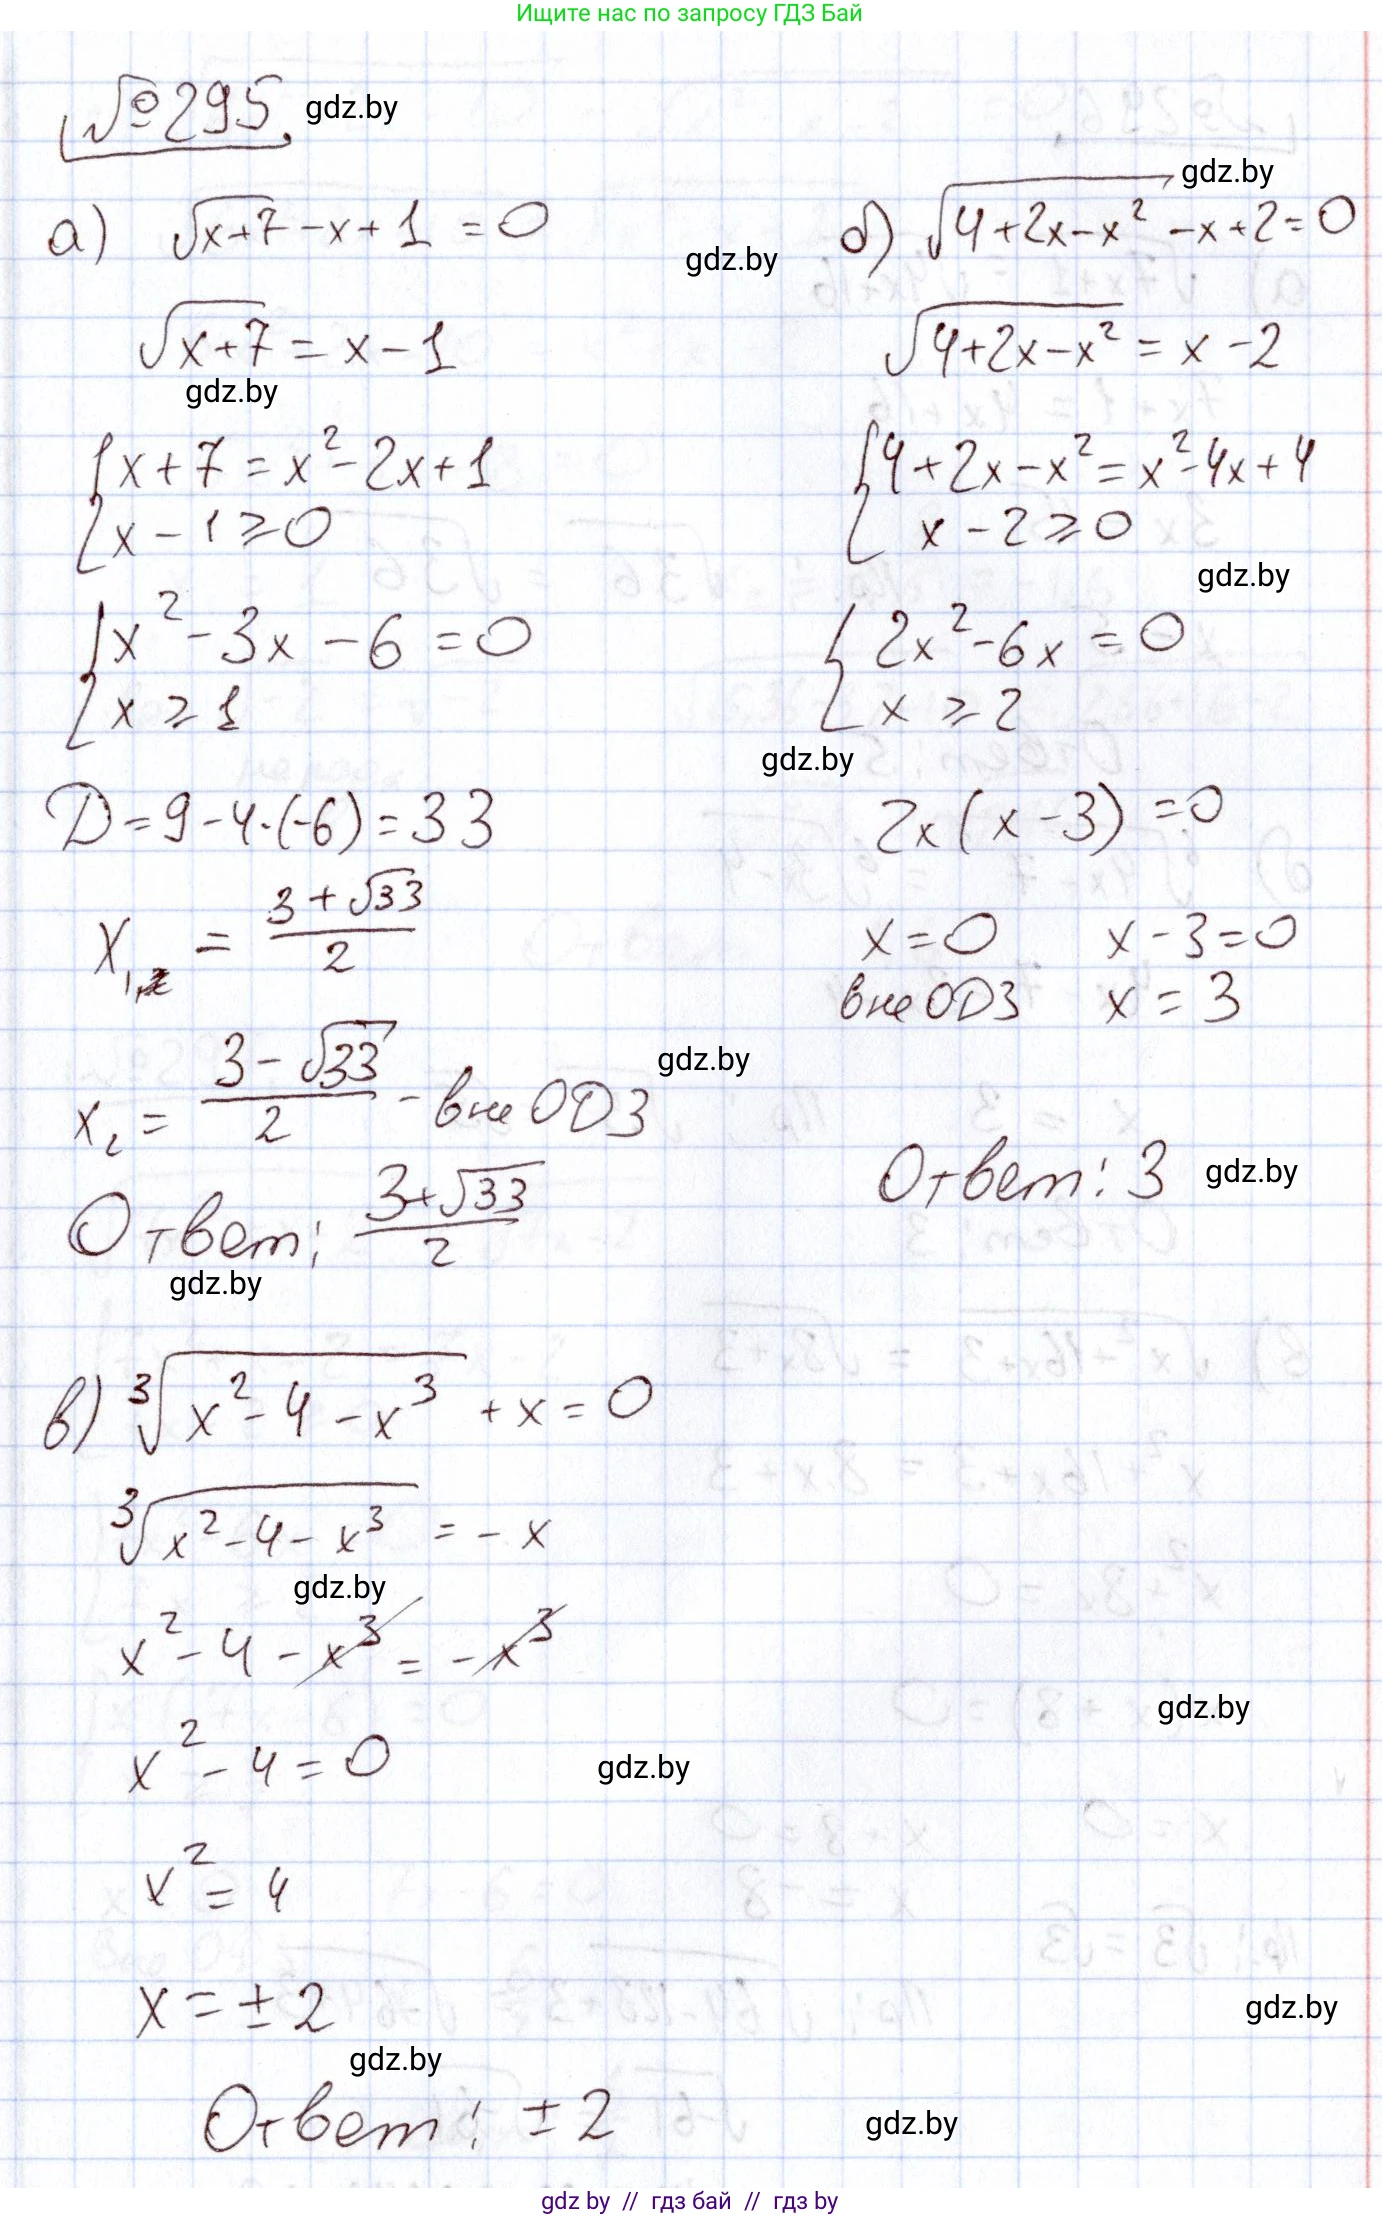 Ищите нас по запросу ГДЗ Бай
№295. gdz.by
а) √(x+7) - x + 1 = 0
√(x+7) = x - 1
gdz.by
{x + 7 = x² - 2x + 1
{x - 1 ⩾ 0
{x² - 3x - 6 = 0
{x ⩾ 1
D = 9 - 4·(-6) = 33
x₁ = (3 + √33)/2
x₂ = (3 - √33)/2 - вне ОДЗ
gdz.by
Ответ: (3 + √33)/2
gdz.by
gdz.by
б) √(4 + 2x - x²) - x + 2 = 0
gdz.by
√(4 + 2x - x²) = x - 2
{4 + 2x - x² = x² - 4x + 4
{x - 2 ⩾ 0
gdz.by
{2x² - 6x = 0
{x ⩾ 2
gdz.by
2x(x - 3) = 0
x = 0 x - 3 = 0
вне ОДЗ x = 3
Ответ: 3 gdz.by
в) ³√(x² - 4 - x³) + x = 0
³√(x² - 4 - x³) = - x
gdz.by
x² - 4 - x³ = - x³
gdz.by
x² - 4 = 0
gdz.by
x² = 4
x = ± 2
gdz.by
gdz.by
Ответ: ± 2
gdz.by
gdz by // гдз бай // гдз by